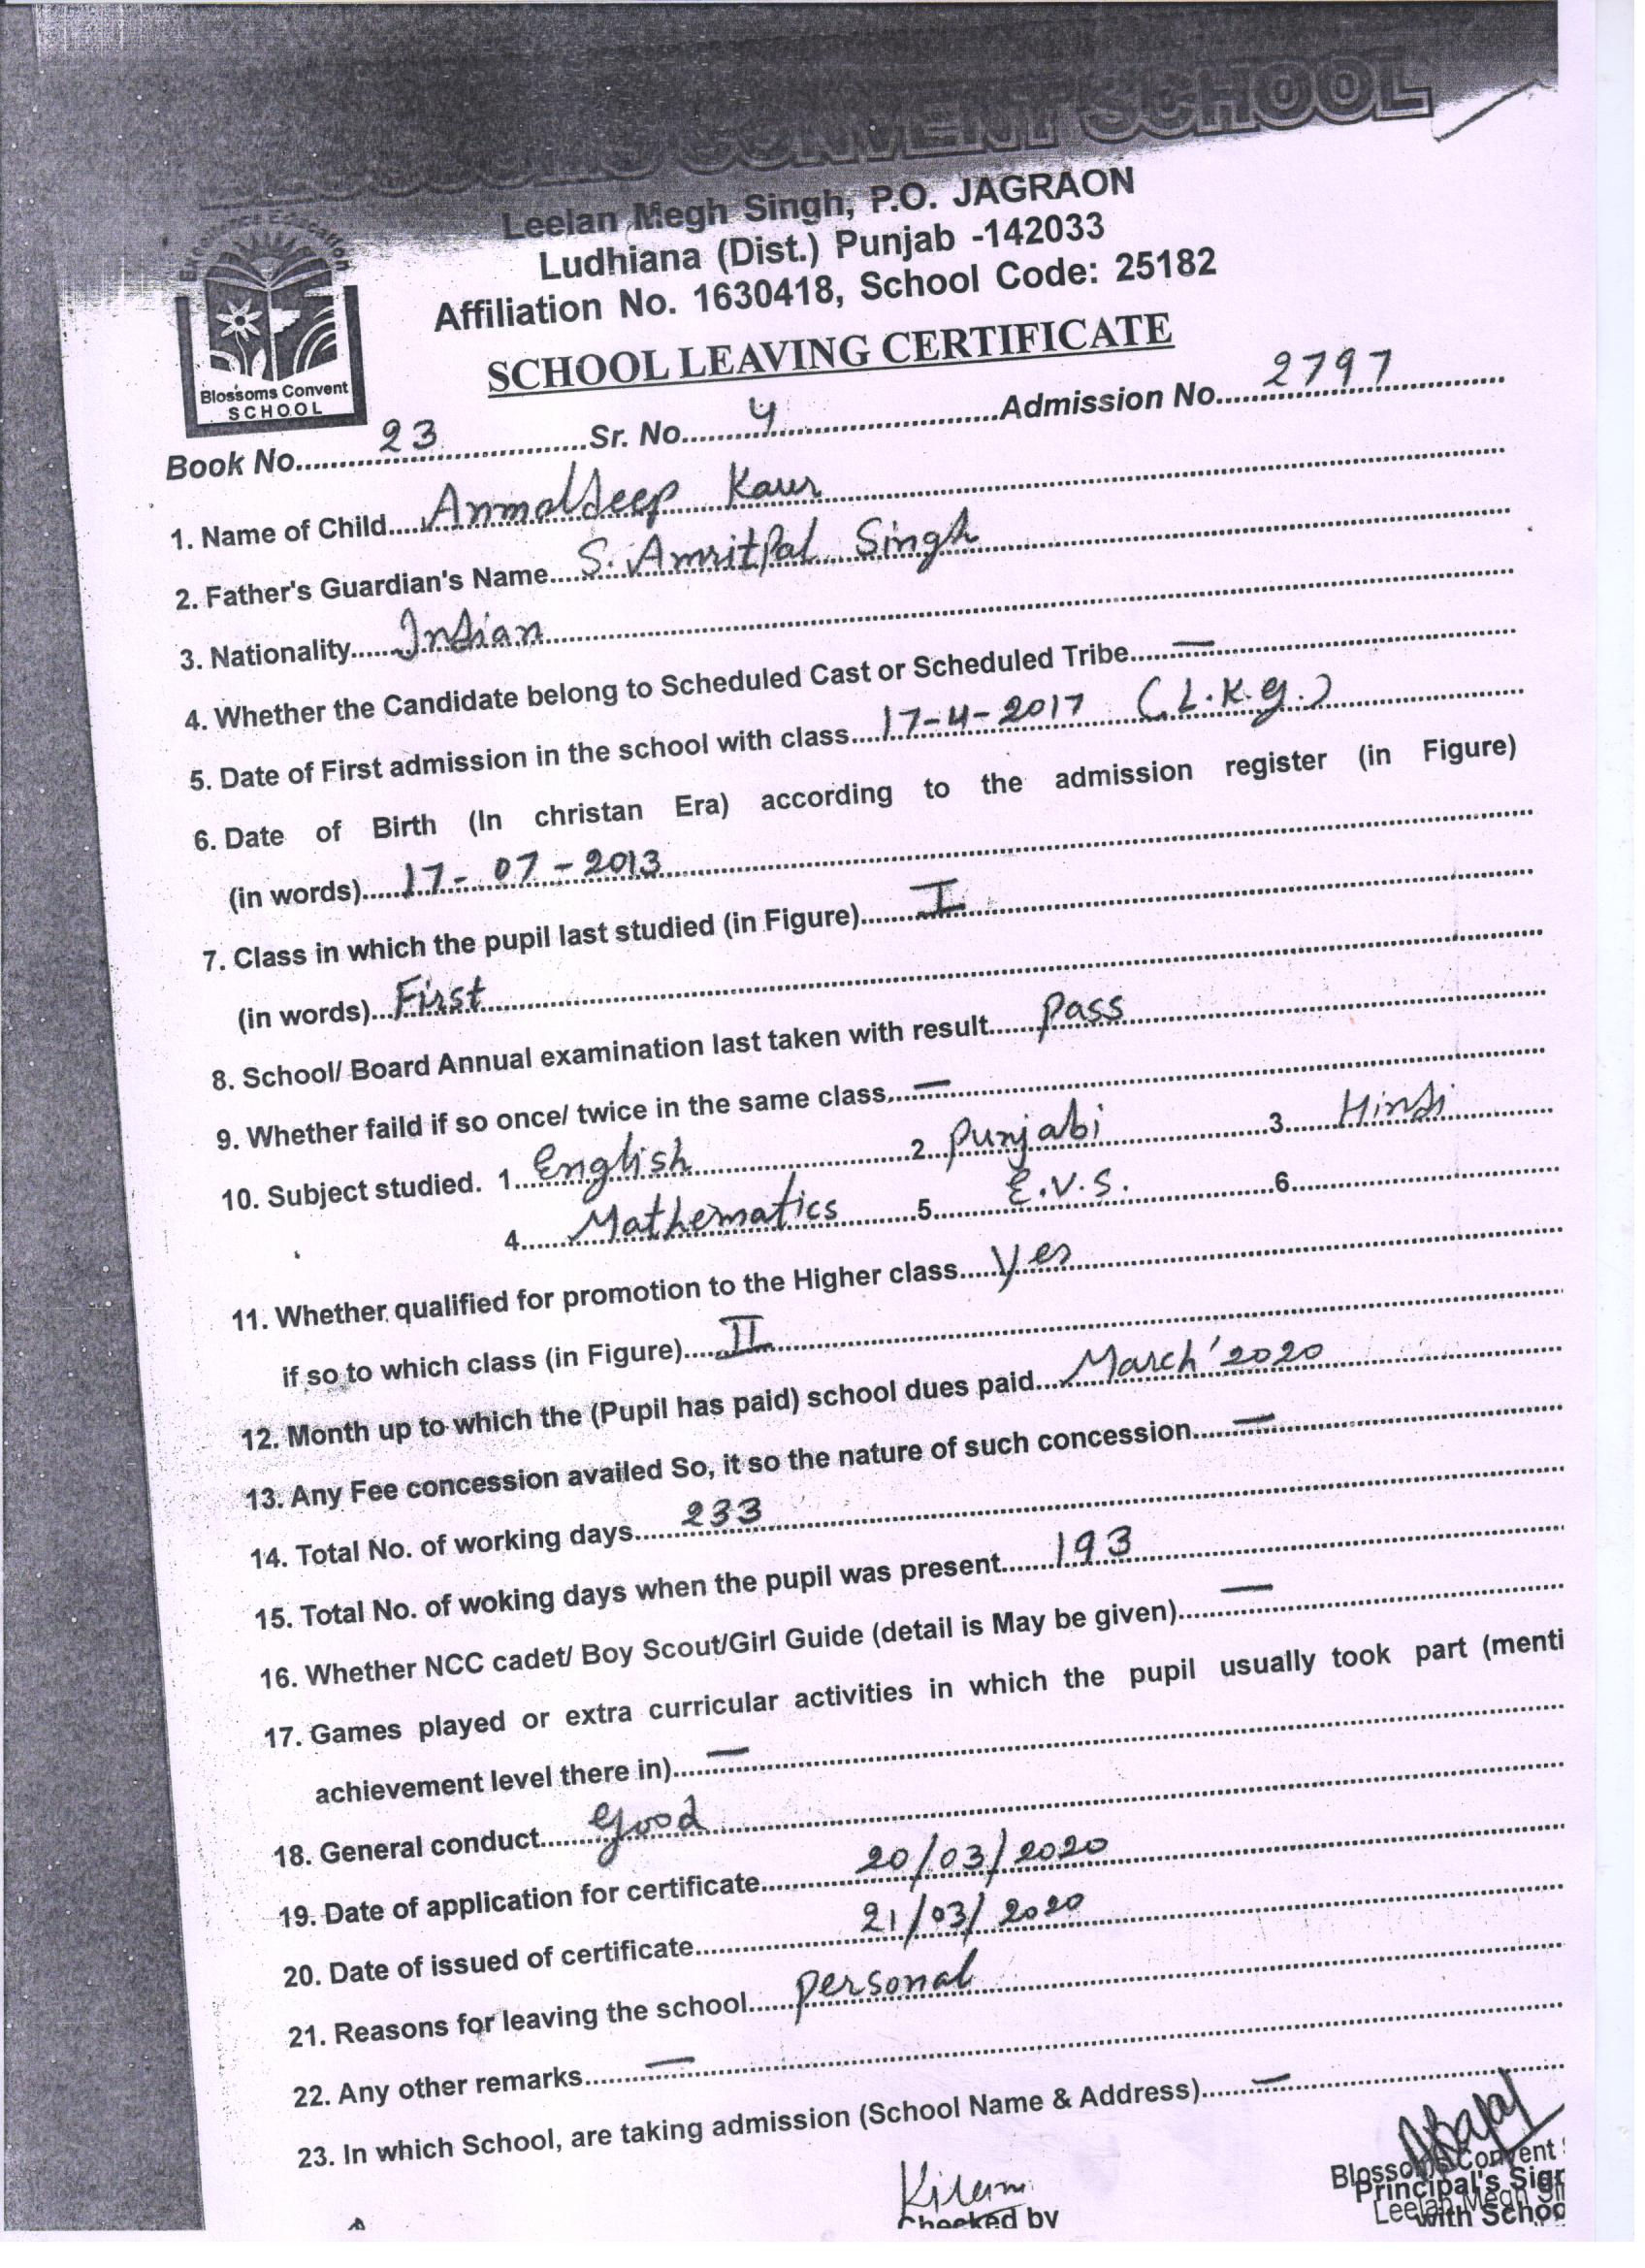 BLOSSOMS CONVENT SCHOOL
Leelan Megh Singh, P.O. JAGRAON
Ludhiana (Dist.) Punjab -142033
Affiliation No. 1630418, School Code: 25182
Excellence Education
Blossoms Convent
SCHOOL
SCHOOL LEAVING CERTIFICATE
Book No. 23 Sr. No. 4 Admission No. 2797
1. Name of Child Anmoldeep Kaur
2. Father's Guardian's Name S. Amritpal Singh
3. Nationality Indian
4. Whether the Candidate belong to Scheduled Cast or Scheduled Tribe —
5. Date of First admission in the school with class 17-4-2017 (L.K.g.)
6. Date of Birth (In christan Era) according to the admission register (in Figure)
(in words) 17-07-2013
7. Class in which the pupil last studied (in Figure) I
(in words) First
8. School/ Board Annual examination last taken with result pass
9. Whether faild if so once/ twice in the same class —
10. Subject studied. 1. English 2. Punjabi 3. Hindi
4. Mathematics 5. E.V.S. 6.
11. Whether qualified for promotion to the Higher class yes
if so to which class (in Figure) II
12. Month up to which the (Pupil has paid) school dues paid March'2020
13. Any Fee concession availed So, it so the nature of such concession —
14. Total No. of working days 233
15. Total No. of woking days when the pupil was present 193
16. Whether NCC cadet/ Boy Scout/Girl Guide (detail is May be given) —
17. Games played or extra curricular activities in which the pupil usually took part (menti
achievement level there in) —
18. General conduct good
19. Date of application for certificate 20/03/2020
20. Date of issued of certificate 21/03/2020
21. Reasons for leaving the school personal
22. Any other remarks —
23. In which School, are taking admission (School Name & Address) —
Checked by
Blossoms Convent
Principal's Sign
Leelan Megh Si
with Schoo